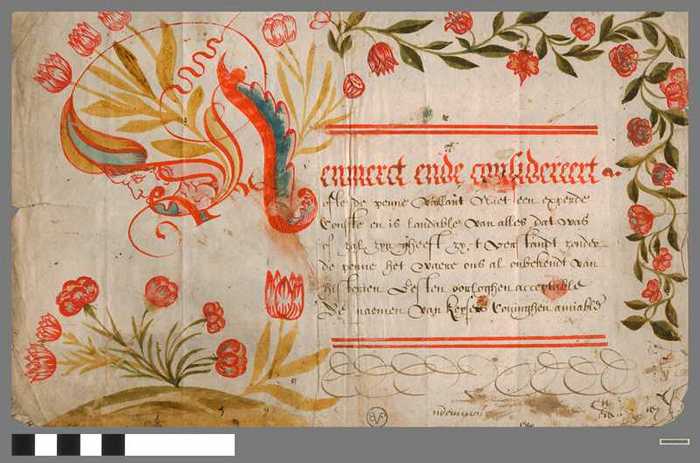 Aenmerct ende considereert
alle de penne vaillant Niet een expende
Conste en is laudable van alles dat was
of zal zyn gheest zy, t verstandt zonder
de penne het waere ons al onbekendt van
historien Iesten oorloghen acceptable
De naemen van keysers Coninghen amiable